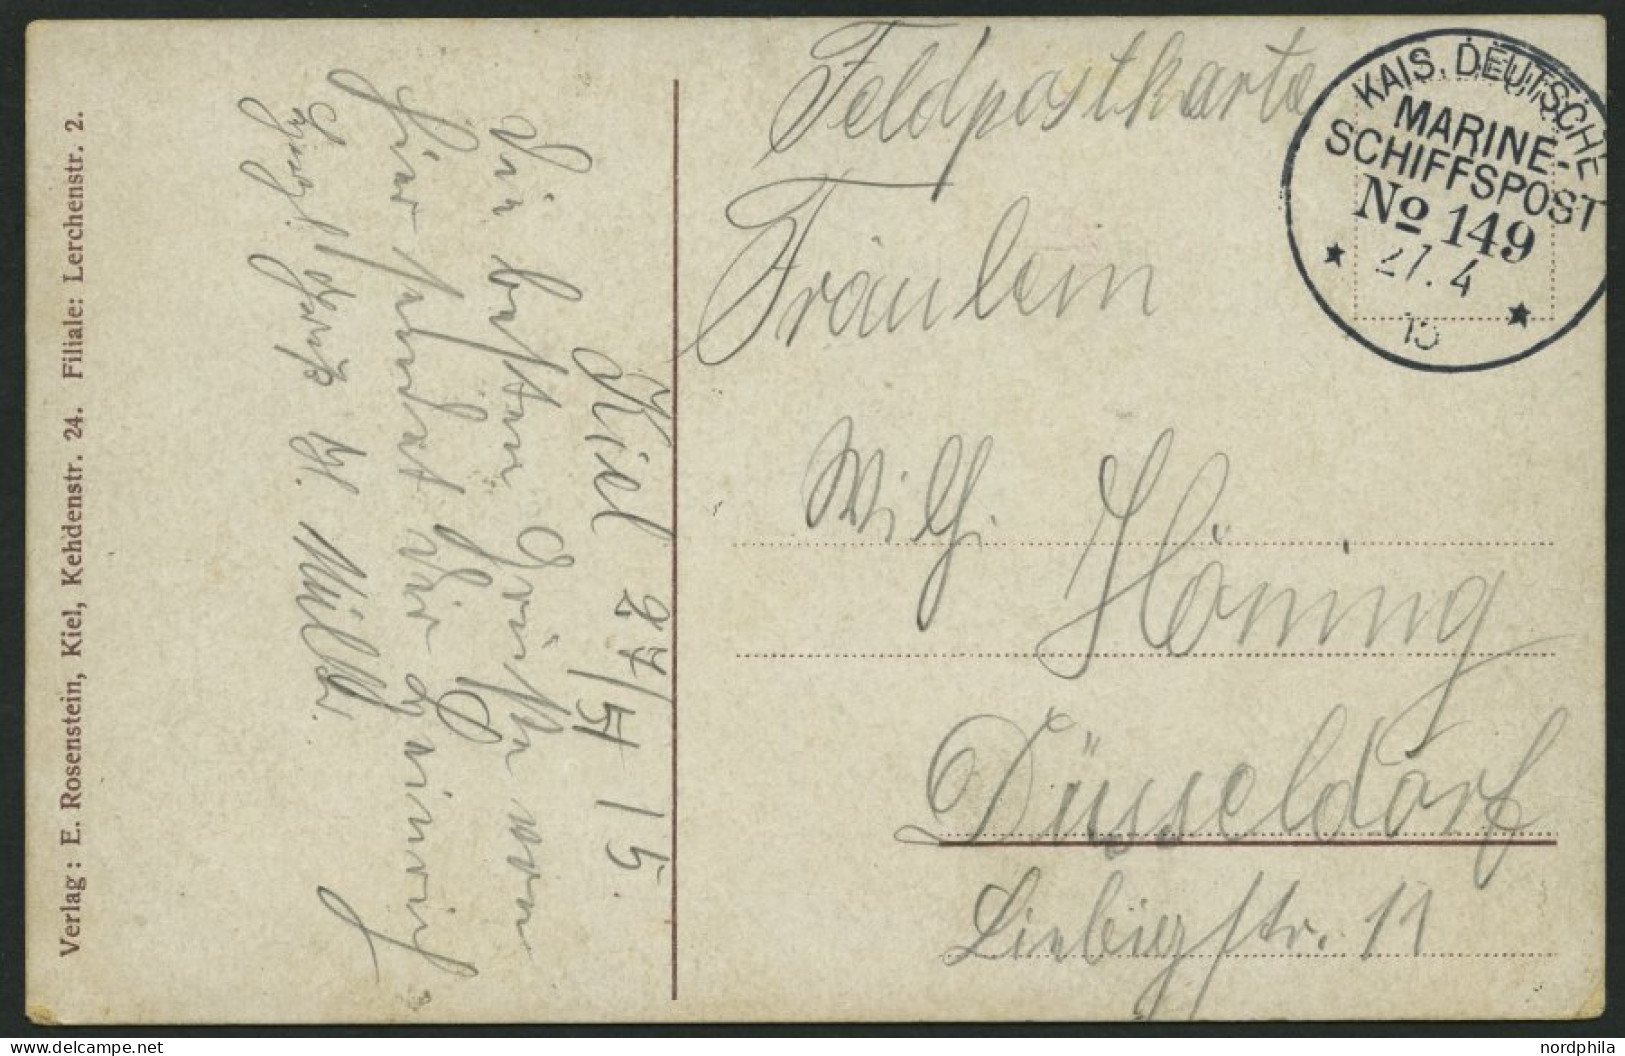 Feldpostkarte
KAIS. DEUTSCHE
MARINE-
SCHIFFSPOST
No 149
27. 4
15
Fräulein
Wilh. Höning
Düsseldorf
Liebigstr. 11
Kiel 27/4 15.
Die besten Grüße vom
hier sendet Dir Heinrich
Gruß H. Müller.
Verlag: E. Rosenstein, Kiel, Kehdenstr. 24. Filiale: Lerchenstr. 2.
nordphila